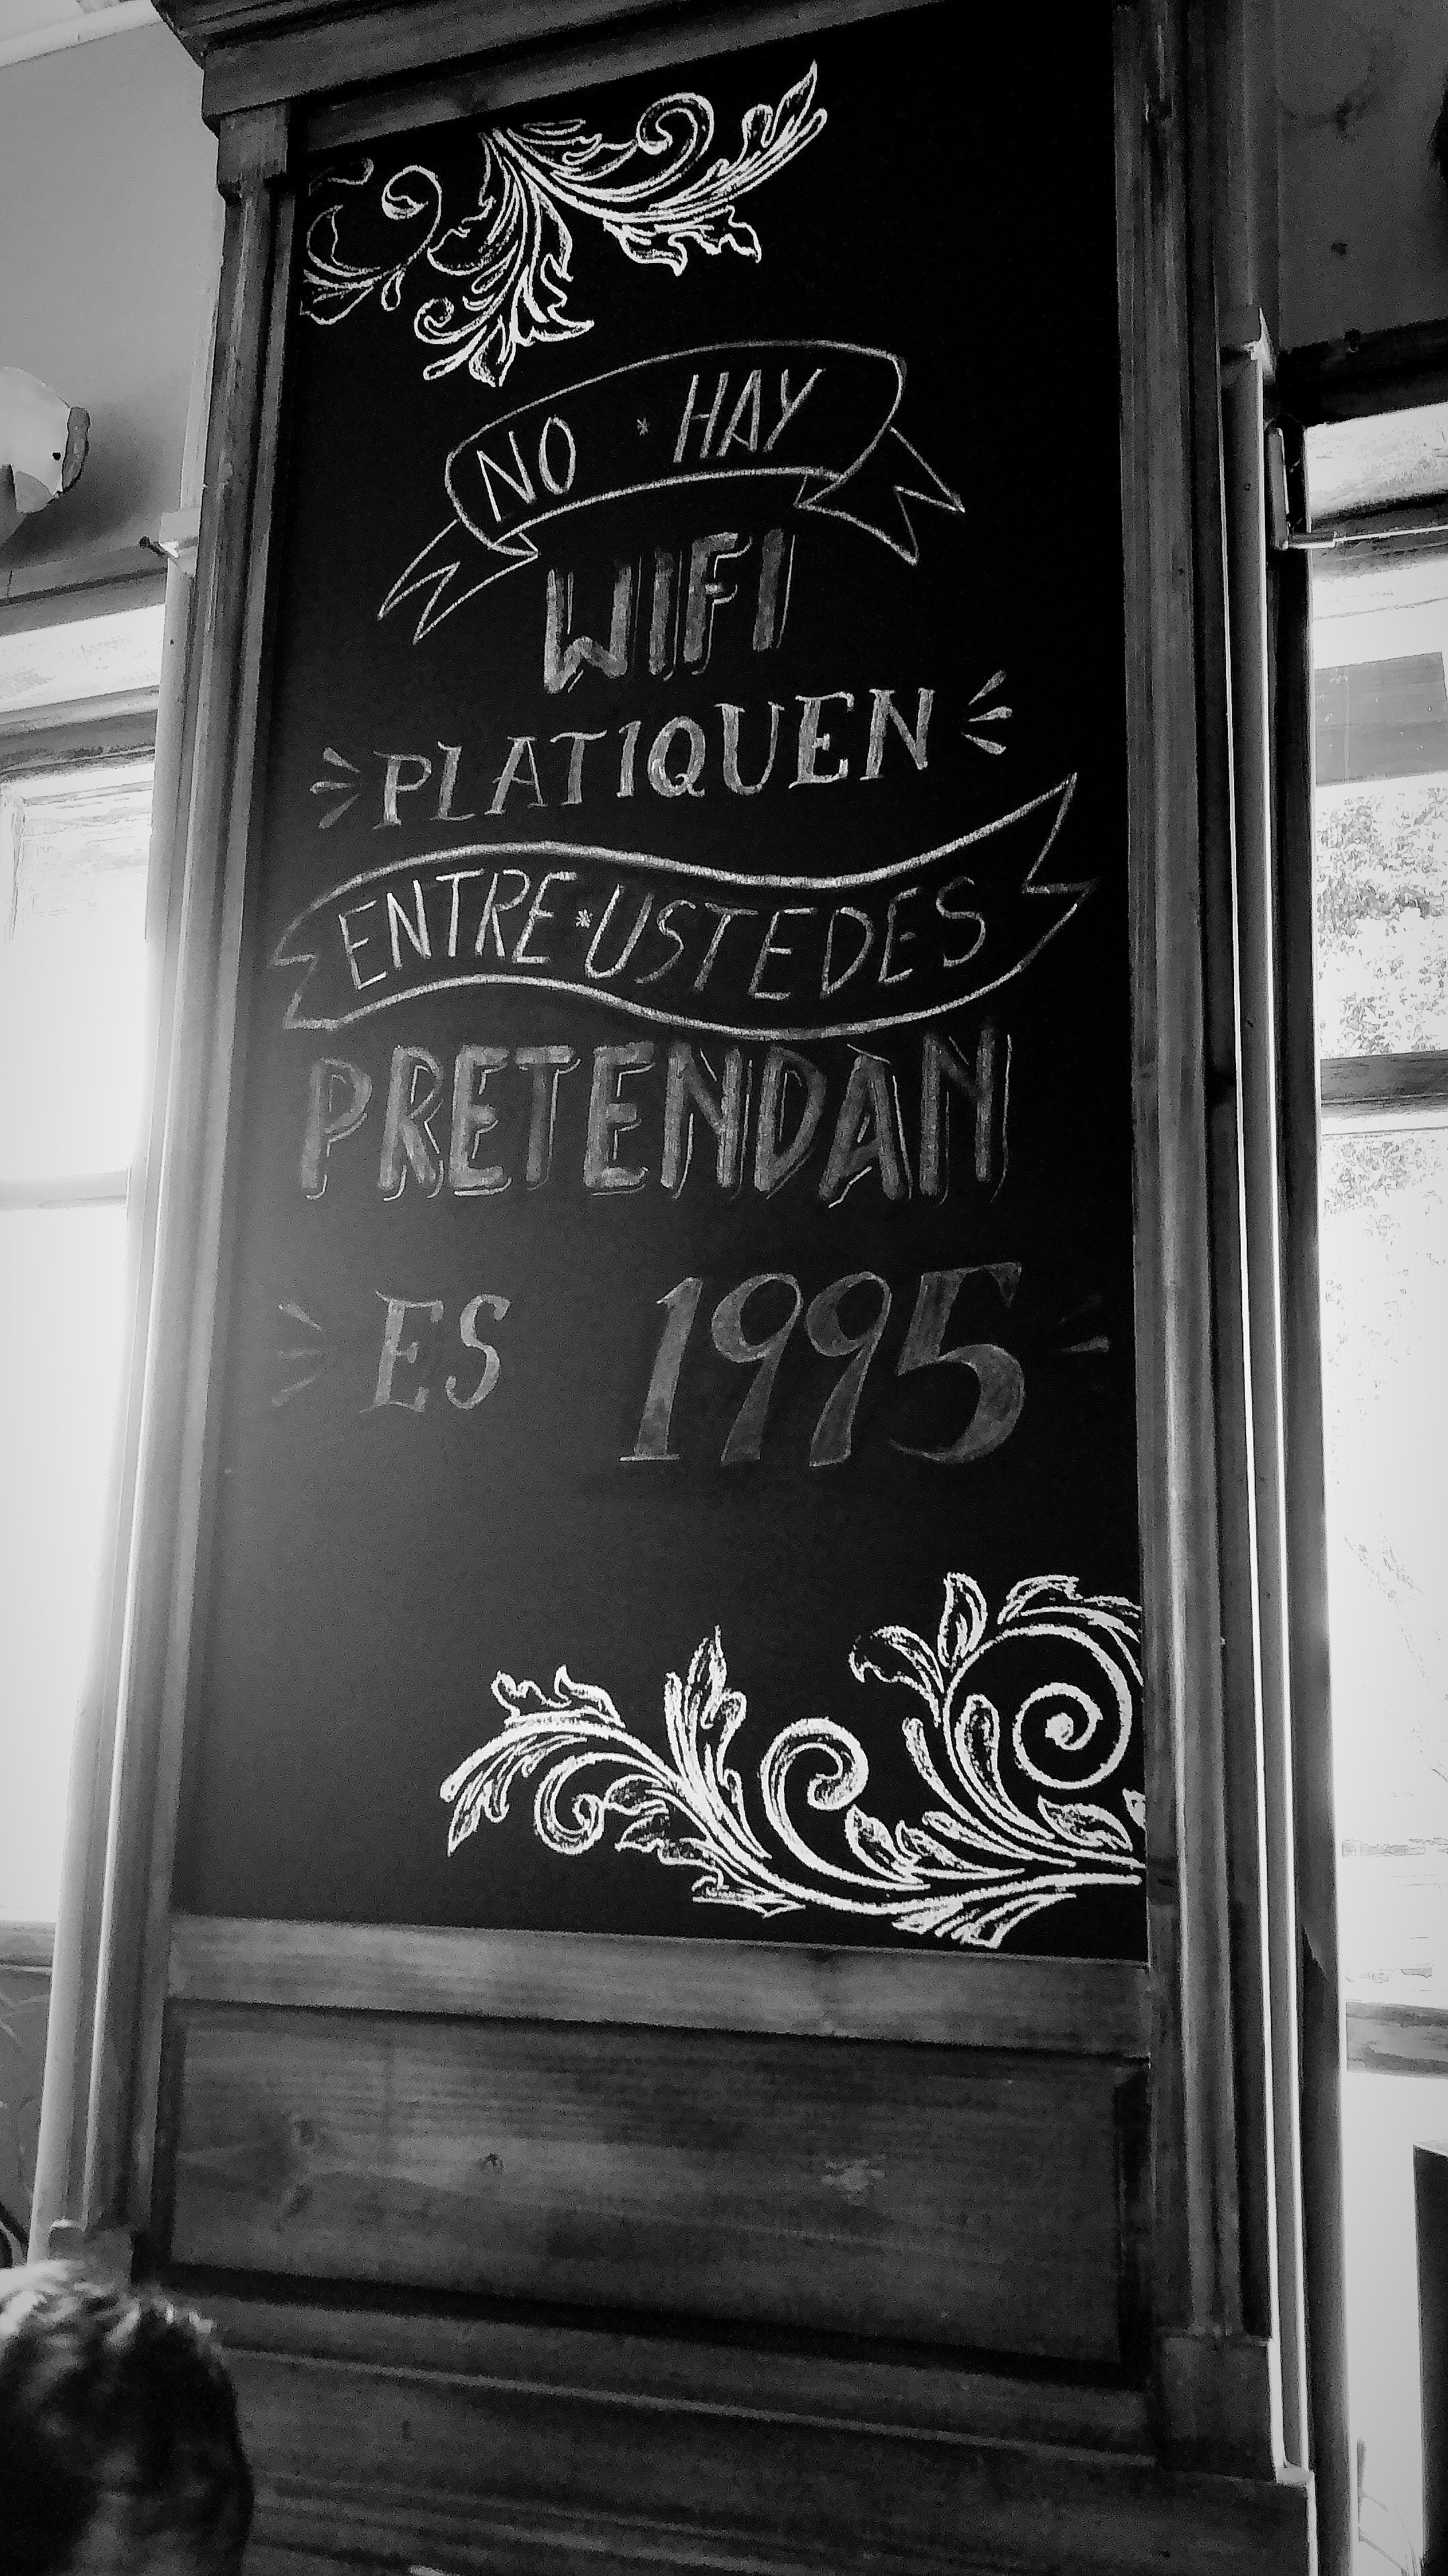 NO * HAY
WIFI
PLATIQUEN
ENTRE*USTEDES
PRETENDAN
ES 1995